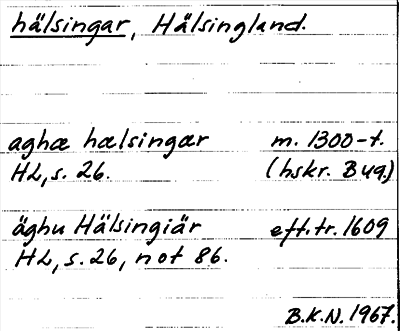 hälsingar, Hälsingland.
aghæ hælsingær m. 1300-t.
HL, s. 26. (hskr. B uq.)
äghu Hälsingiär eft. tr. 1609
HL, s. 26, not 86.
B.K.N. 1967.